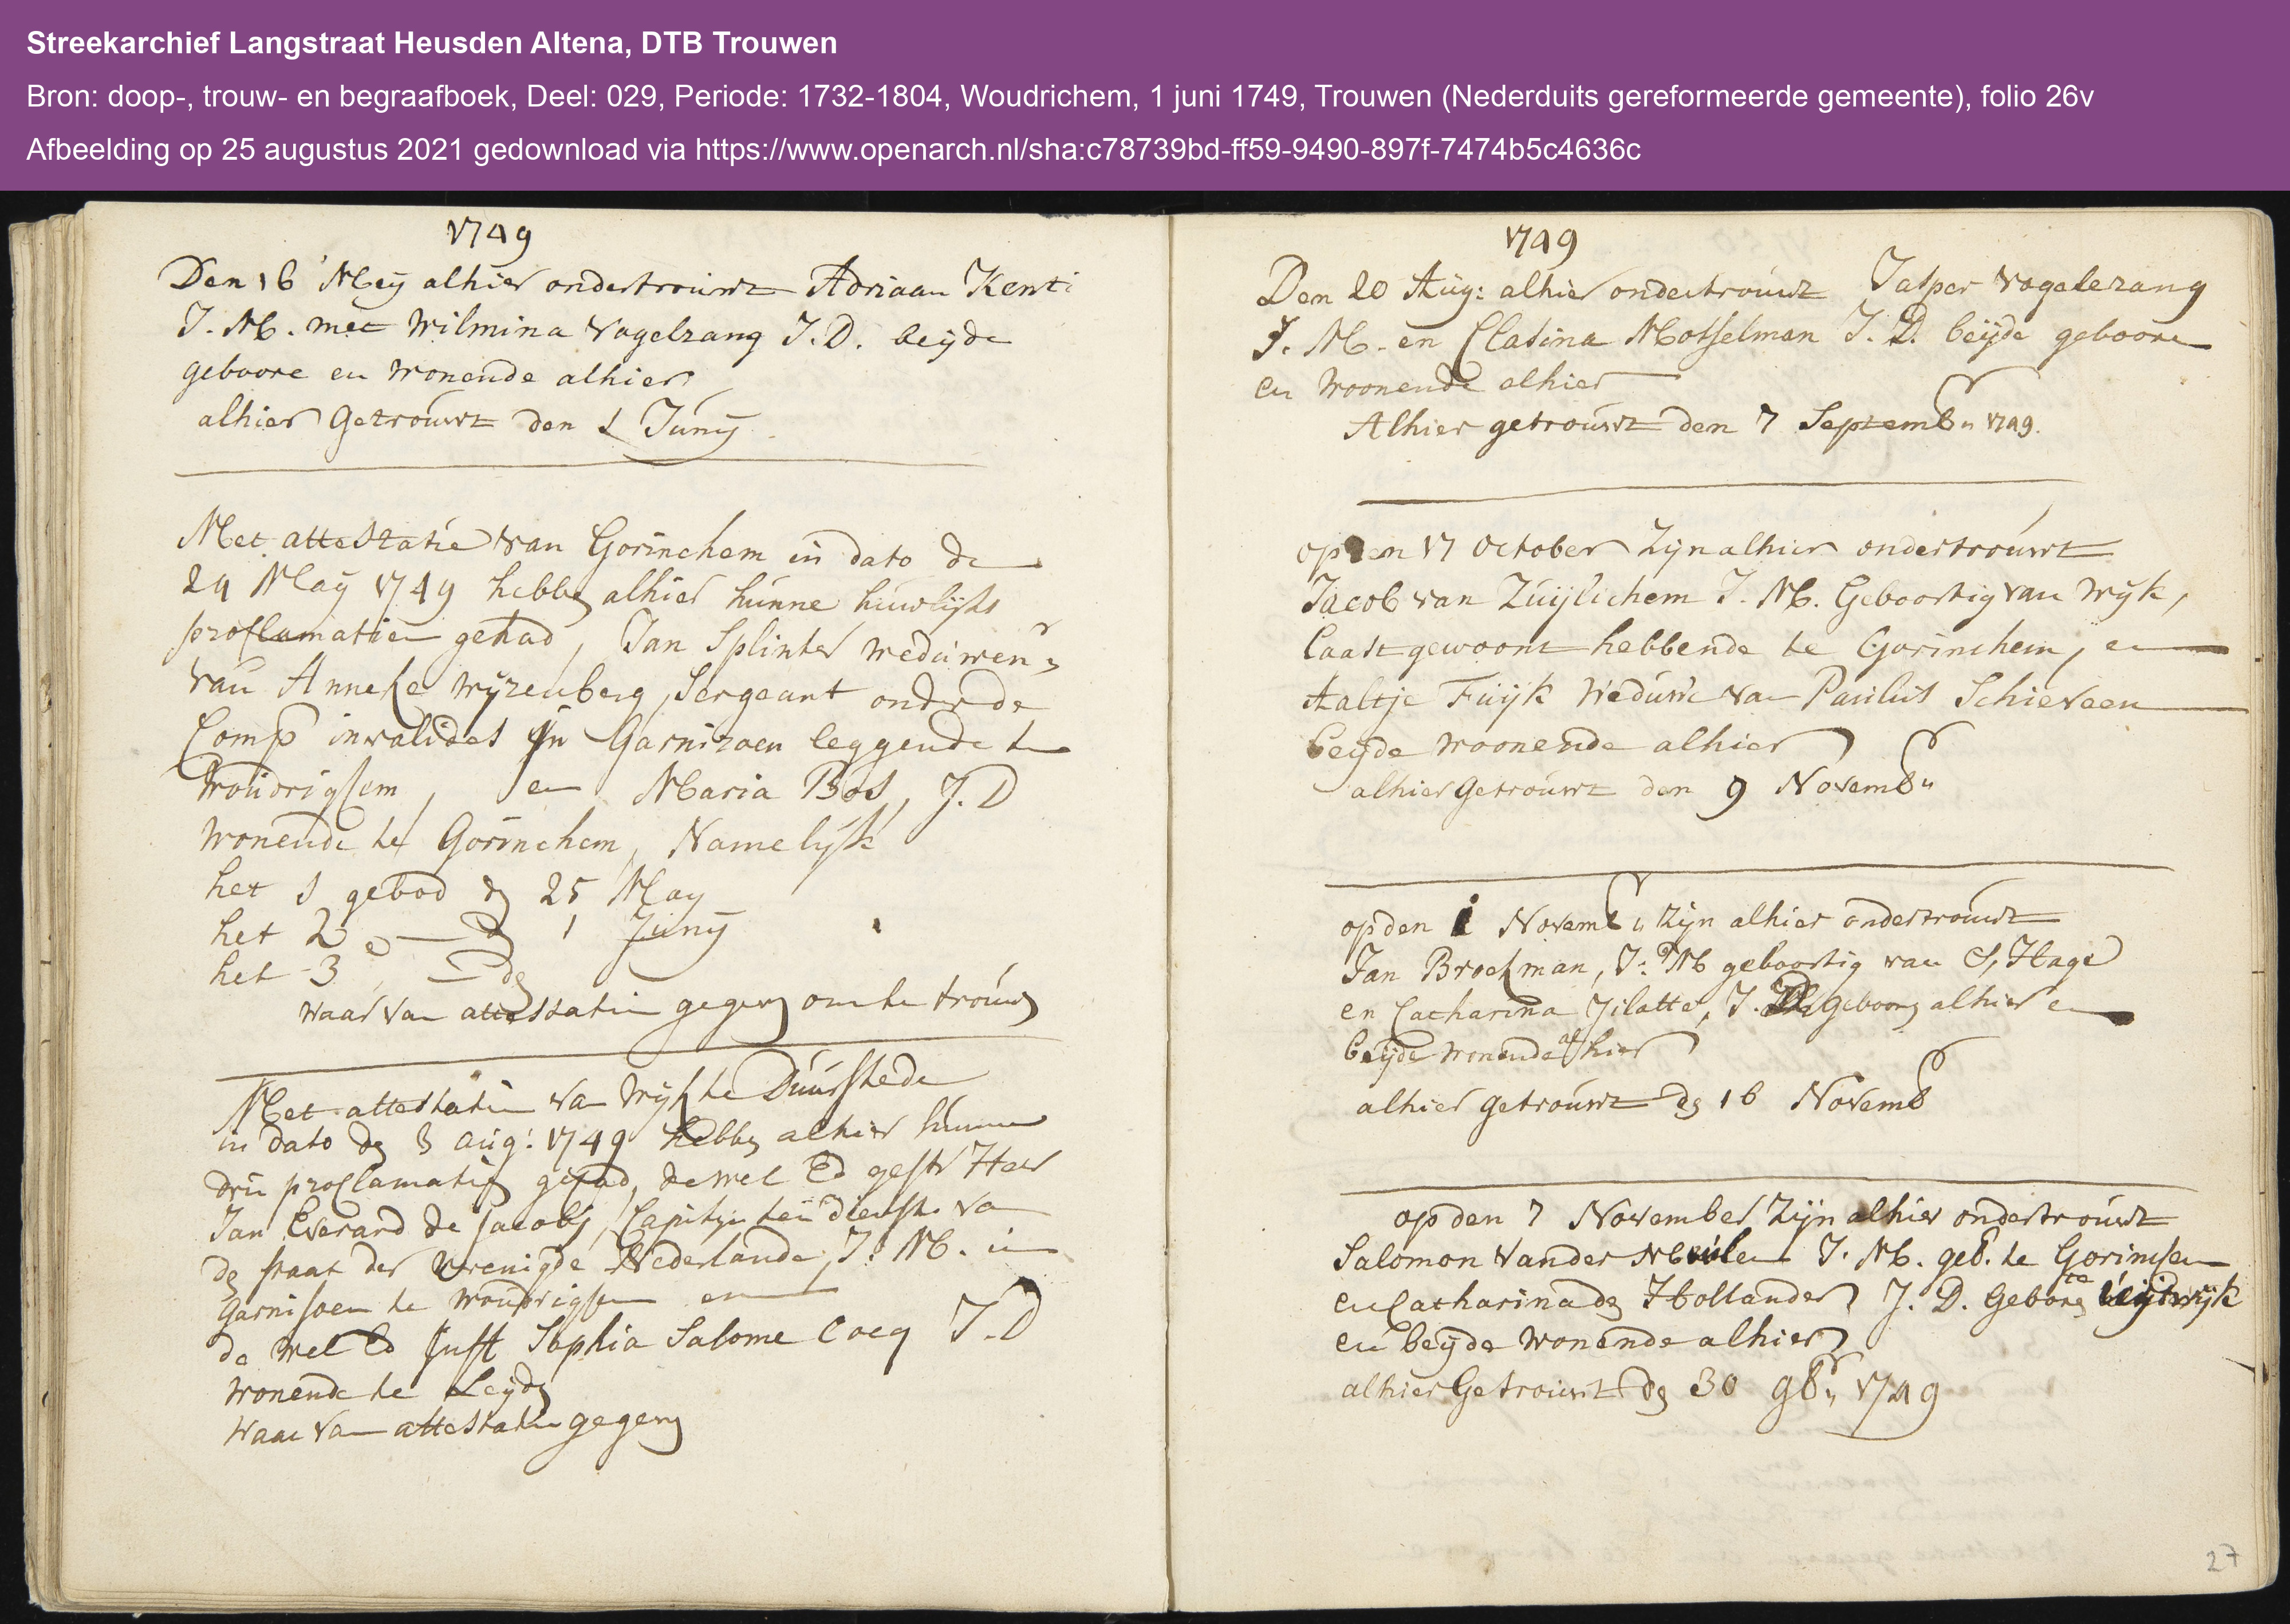 Streekarchief Langstraat Heusden Altena, DTB Trouwen
Bron: doop-, trouw- en begraafboek, Deel: 029, Periode: 1732-1804, Woudrichem, 1 juni 1749, Trouwen (Nederduits gereformeerde gemeente), folio 26v
Afbeelding op 25 augustus 2021 gedownload via https://www.openarch.nl/sha:c78739bd-ff59-9490-897f-7474b5c4636c
1749
Den 16 Mey alhier ondertrouwt Adriaan
J. M. met Wilmina Vogelzang J. D. beijde
geboore en wonende alhier
alhier Getrouwt den 1 Junij
Met attestatie van Gorinchem in dato de
24 May 1749 hebben alhier hunne huwlijks
proclamatien gehad, Jan Splinter weduwenr
van Anneke Wijzenberg, Sergeant onder de
Comp invalides in Garnizoen leggende te
Woudrigsem, en Maria Bos, J. D
wonende te Gorinchem, Namelijk
het 1 gebod den 25 May
het 2e — den 1 Junij
het 3e — den
waar van attestatie gegeven om te trouwen
Met attestatie van Wijk te Duurstede
in dato den 3 aug: 1749 hebben alhier hunne
drie proclamatien gehad, de wel Ed gestr Heer
Jan Everard de Jacobi, Capitijn ten dienste van
den staat der Verenigde Nederlande, J. M. in
Garnisoen te Woudrigsem en
de Wel Ed Juff Sophia Salome Cocq J. D
wonende te Leyden
waar van attestatie gegeven
1749
Den 20 Aug: alhier ondertrouwt Jasper Vogelezang
J. M. en Clasina Mosselman J. D. beijde geboore
en Woonende alhier
Alhier getrouwt den 7 Septembr 1749.
op den 17 October Zijn alhier ondertrouwt
Jacob van Zuijlichem J. M. Geboortig van Wijk,
laast gewoont hebbende te Gorinchem, en
Aaltje Fuijk Weduwe van Paulus Schieveen
beyde woonende alhier
alhier Getrouwt den 9 Novembr
op den 1 Novembr Zijn alhier ondertrouwt
Jan Brockman, J: M geboortig van S, Hage
en Catharina Jilatte, J. D geboren alhier en
beijde wonende alhier
alhier getrouwt den 16 Novembr
op den 7 November Zijn alhier ondertrouwt
Salomon Vander Meulen J. M. geb. te Gorinchem
en Catharina den Hollander J. D. Geboren te
en beijde wonende alhier
alhier Getrouwt den 30 9br 1749
27